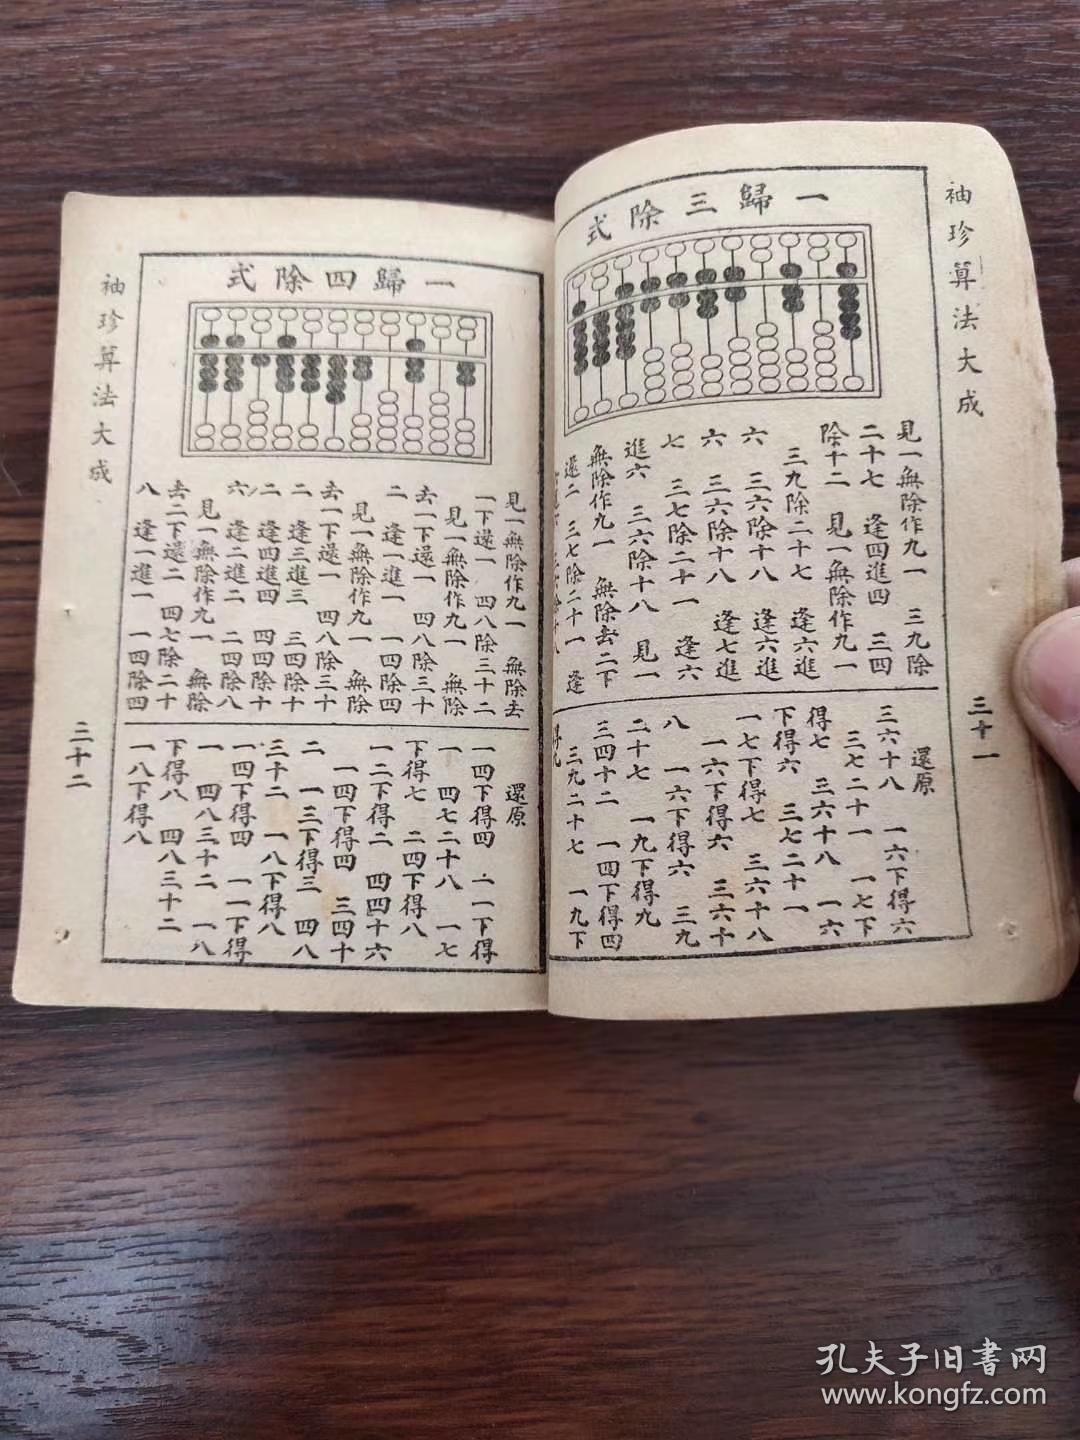 袖珍算法大成
三十一
一歸三除式
見一無除作九一　三九除
二十七　逢四進四　三四
除十二　見一無除作九一
三九除二十七　逢六進
六　三六除十八　逢六進
六　三六除十八　逢七進
七　三七除二十一　逢六
進六　三六除十八　見一
無除作九一　無除去二下
還二　三七除二十一　逢
還原
三六十八　一六下得六
三七二十一　一七下
得七　三六十八　一六
下得六　三七二十一
一七下得七　三六十八
一六下得六　三六十
八　一六下得六　三九
二十七　一九下得九
三四十二　一四下得四
三九二十七　一九下
得九
袖珍算法大成
三十二
一歸四除式
見一無除作九一　無除去
一下還一　四八除三十二
見一無除作九一　無除
去一下還一　四八除三十
二　逢一進一　一四除四
見一無除作九一　無除
去一下還一　四八除三十
二　逢三進三　三四除十
二　逢四進四　四四除十
六　逢二進二　二四除八
見一無除作九一　無除
去二下還二　四七除二十
八　逢一進一　一四除四
還原
一四下得四　一一下得
一　四七二十八　一七
下得七　二四下得八
一二下得二　四四十六
一四下得四　三四十
二　一三下得三　四八
三十二　一八下得八
一四下得四　一一下得
一　四八三十二　一八
下得八　四八三十二
一八下得八
孔夫子旧書网
www.kongfz.com